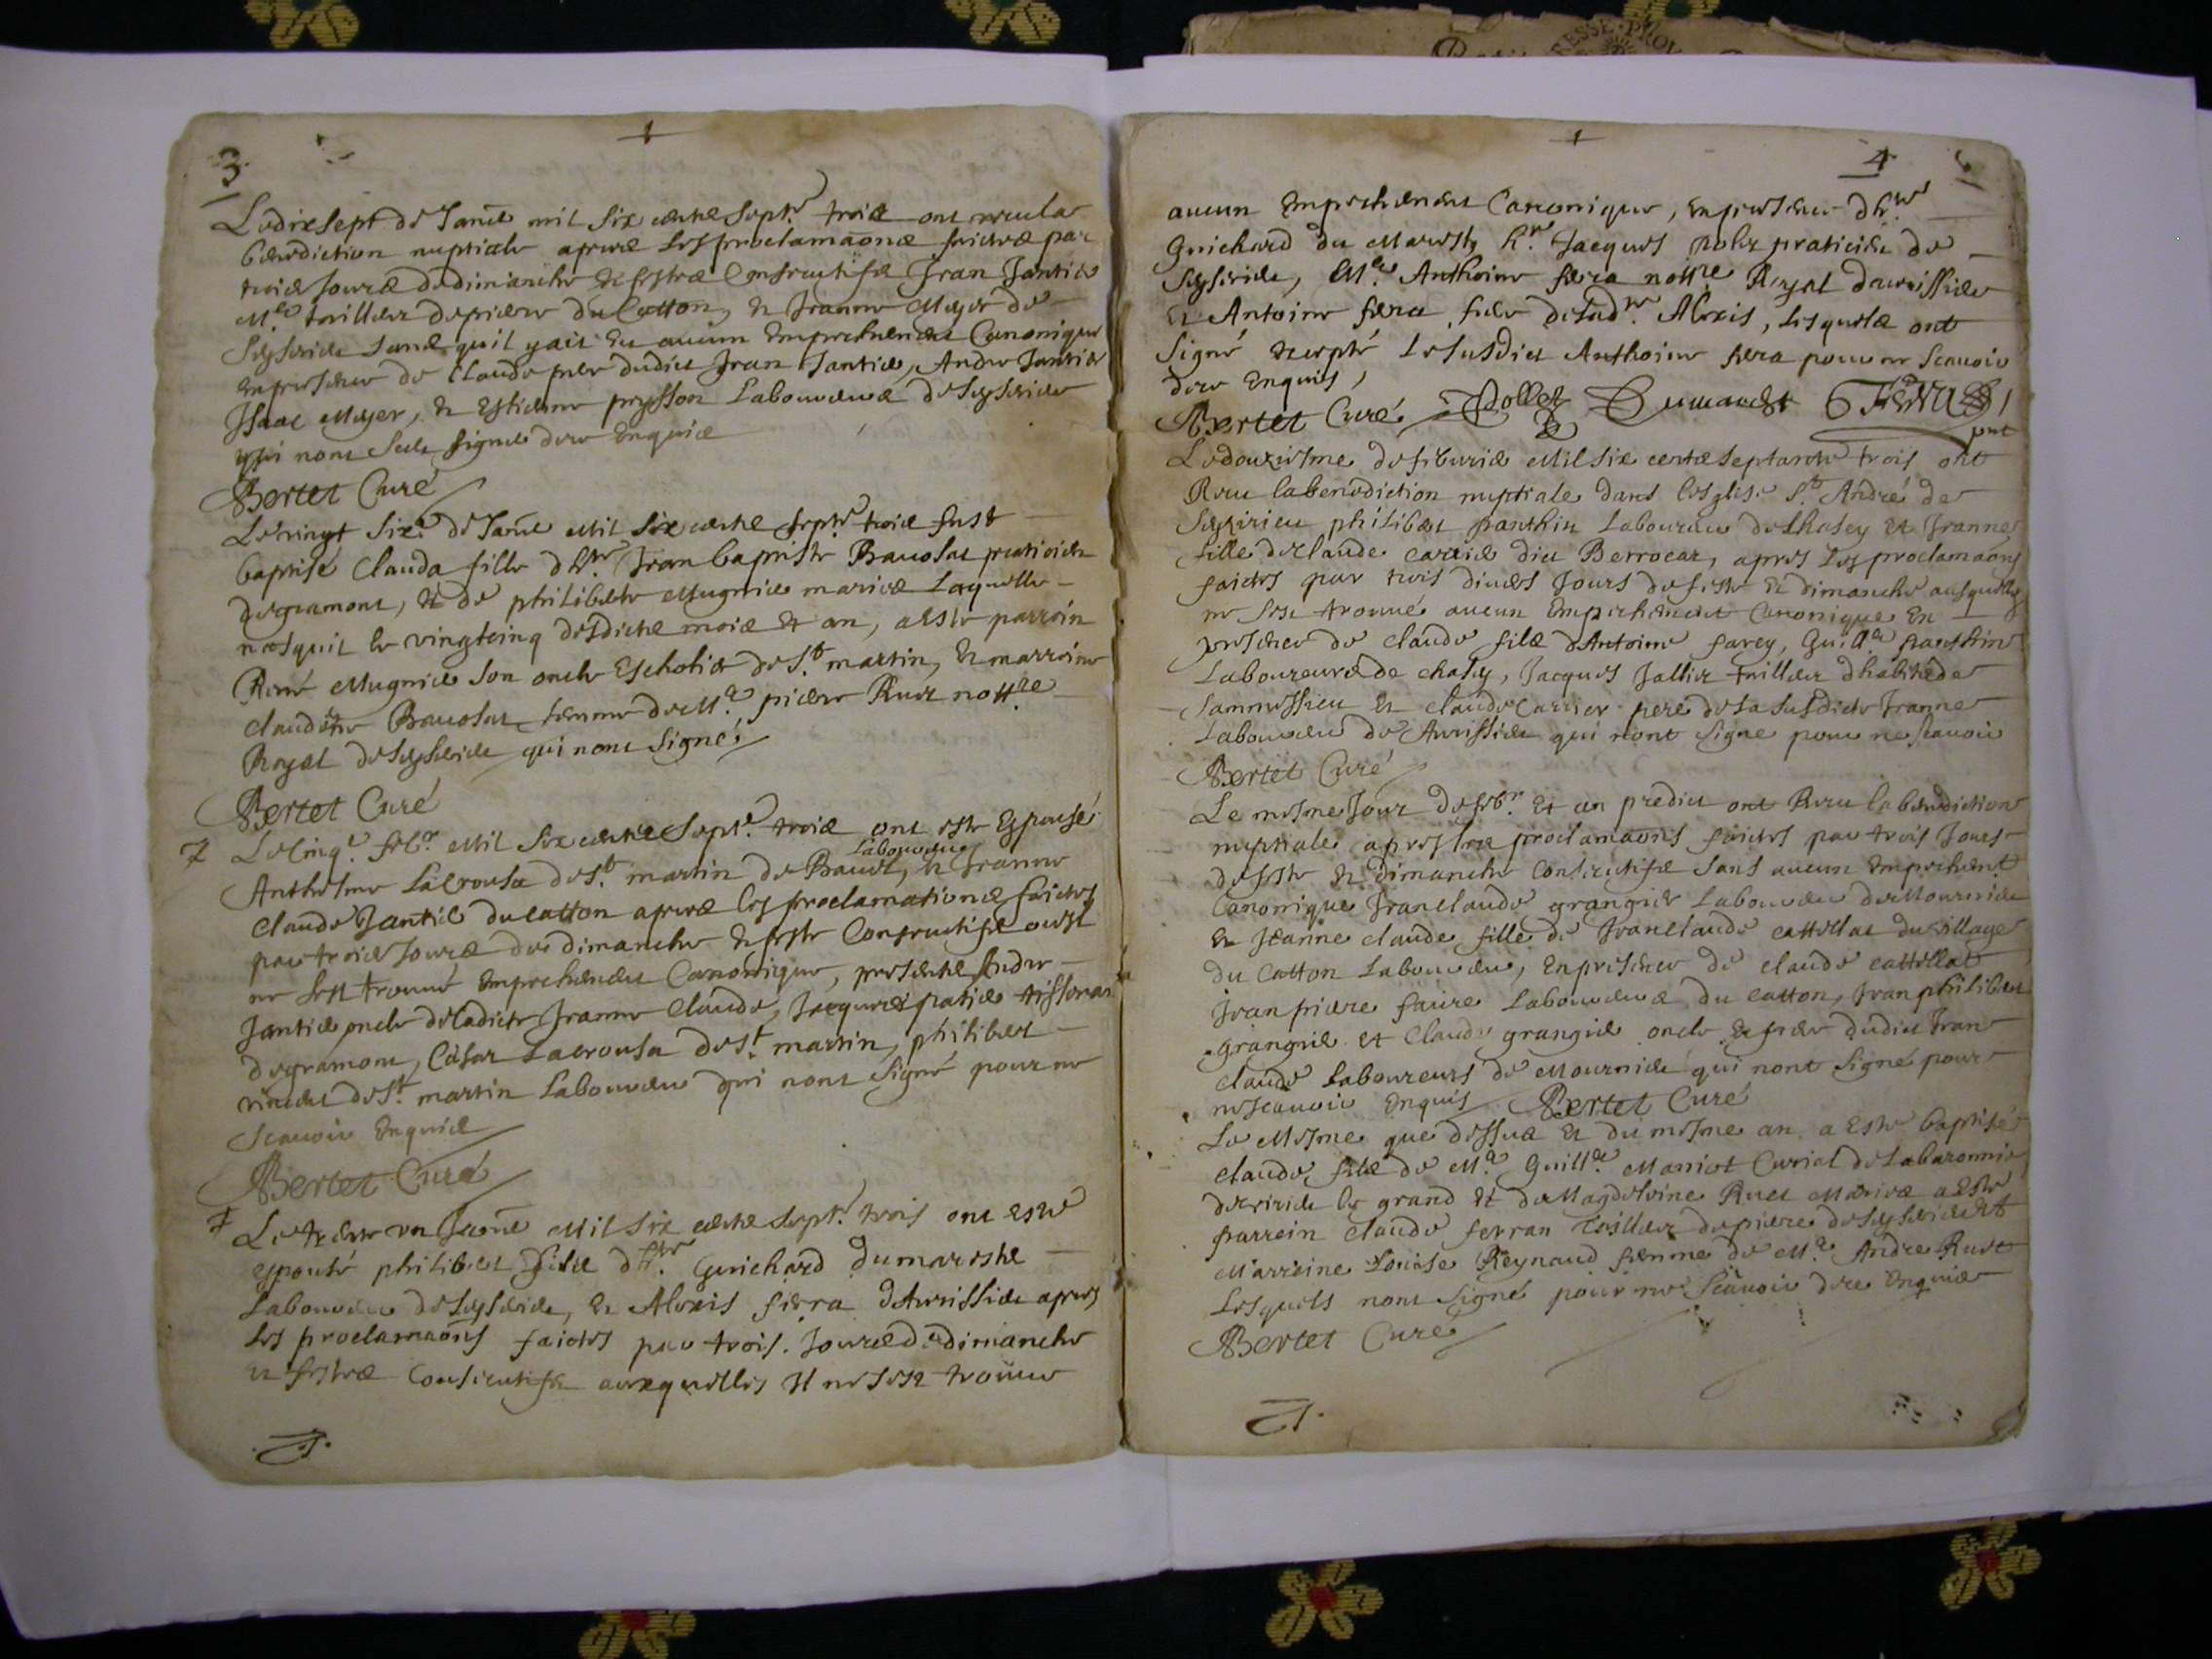 3
Le dixsept de Janv.e mil six cents sept.e trois ont receu la
benediction nuptiale apres les proclamaons faictes par
trois jours de dimanche et festes consecutifs Jean Jantie
M.e tailleur de pierre du Catton, et Jeanne Meyer de
Seyserieu sans quil y ait eu aucun empechement Canonique
en presence de Claude pere dudict Jean Jantie, Andre Jantie
Isaac Meyer, et Estienne prysson Laboureurs de Seyserieu
qui nont sceu signer de ce enquis
Bertet Curé
Le vingt six.e de Janv.e Mil six cents sept.e trois fust
baptisé Clauda fille d h.te Jean baptiste Bavosat praticien
degramont, et de philiberte Mugnie mariés Laquelle
nasquit le vingtcinq desdicts mois et an, a este parroin
René Mugnie son oncle Escholier de S.t martin, et marroine
Claudine Bavosat femme de M.e pierre Ruet nott.re
Royal de Seyserieu qui nont Signé,
Bertet Curé
Le cinq.e feb.r Mil six cents sept.e trois ont este Espousé
Anthelme Lacrousa de S.t martin de Bavel, Laboureur et Jeanne
Claude Jantie du catton apres les proclamations faictes
par trois jours de dimanche et feste Consecutifs ou il
ne sest trouvé Empechement Canonique, presents Andre
Jantie oncle de ladicte Jeanne Claude, Jacques patie tisseran
degramont, César Lacrousa de S.t martin, philibert
vincent de S.t martin Laboureurs qui nont Signé pour ne
Scavoir Enquis
Bertet Curé
Le trente un Janv.e Mil six cents sept.e trois ont esté
espousé philibert fils d h.te Guichard dumarest
Laboureur de Seyserieu, et Alexis fierra d'Avrissieu apres
les proclamaons faictes par trois jours de dimanche
et festes Consecutifs auxquelles Il ne sest trouve
4
aucun Empechement Canonique, en presence d h.te
Guichard du Marest, h.e Jacques pollet praticien de
Seyserieu, M.e Anthoine fierra nott.re Royal d'avrissieu
et Antoine fierra, frere de lad.te Alexis, lesquels ont
Signé excepté Le susdict Anthoine fierra pour ne Scavoir
de ce Enquis,
Bertet Curé Pollet Dumarest FIERRA
pnt
Le douziesme de febvrier Mil six cents septante trois ont
Receu la benediction nuptiale dans leglise S.t André de
Seyzirieu philibert panthin Laboureur de Chasey et Jeanne
fille de Claude carrié dict Berrocar, apres les proclamaons
faictes par trois divers Jours de feste et dimanche ausquelles
ne sest trouvé aucun Empechement Canonique en
presence de Claude fils d'Antoine farey, Guill.e panthin
Laboureurs de chasey, Jacques Jallier tailleur dhabits de
Sammessieu et Claude Carrier pere de la susdicte Jeanne
Laboureur de Avrissieu qui nont Signe pour ne scavoir
Bertet Curé
Le mesme Jour de feb.r Et an predict ont Receu la benediction
nuptiale apres les proclamaons faictes par trois Jours
de feste et dimanche Consecutifs sans aucun Empechent
Canonique Jeanclaude grangier Laboureur de Mournieu
et Jeanne claude fille de Jeanclaude cattellat du village
du Catton Laboureur, en presence de Claude cattellat
Jean pierre faure Laboureurs du catton, Jean philibert
grangié et Claude grangié oncle et frere dudict Jean
Claude Laboureurs de Mournieu qui nont Signé pour
ne scavoir enquis Bertet Curé
Le Mesme que dessus et du mesme an a este baptisé
Claude fils de M.e Guill.e Marriot Curial de la baronnie
de virieu le grand et de Magdeleine Ruet Mariés a este
parrein Claude ferran tailleur de pierre de Seyserieu et
Marreine Louise Reynaud femme de M.e Andre Ruet
Lesquels nont Signé pour ne Scavoir de ce enquis
Bertet Curé